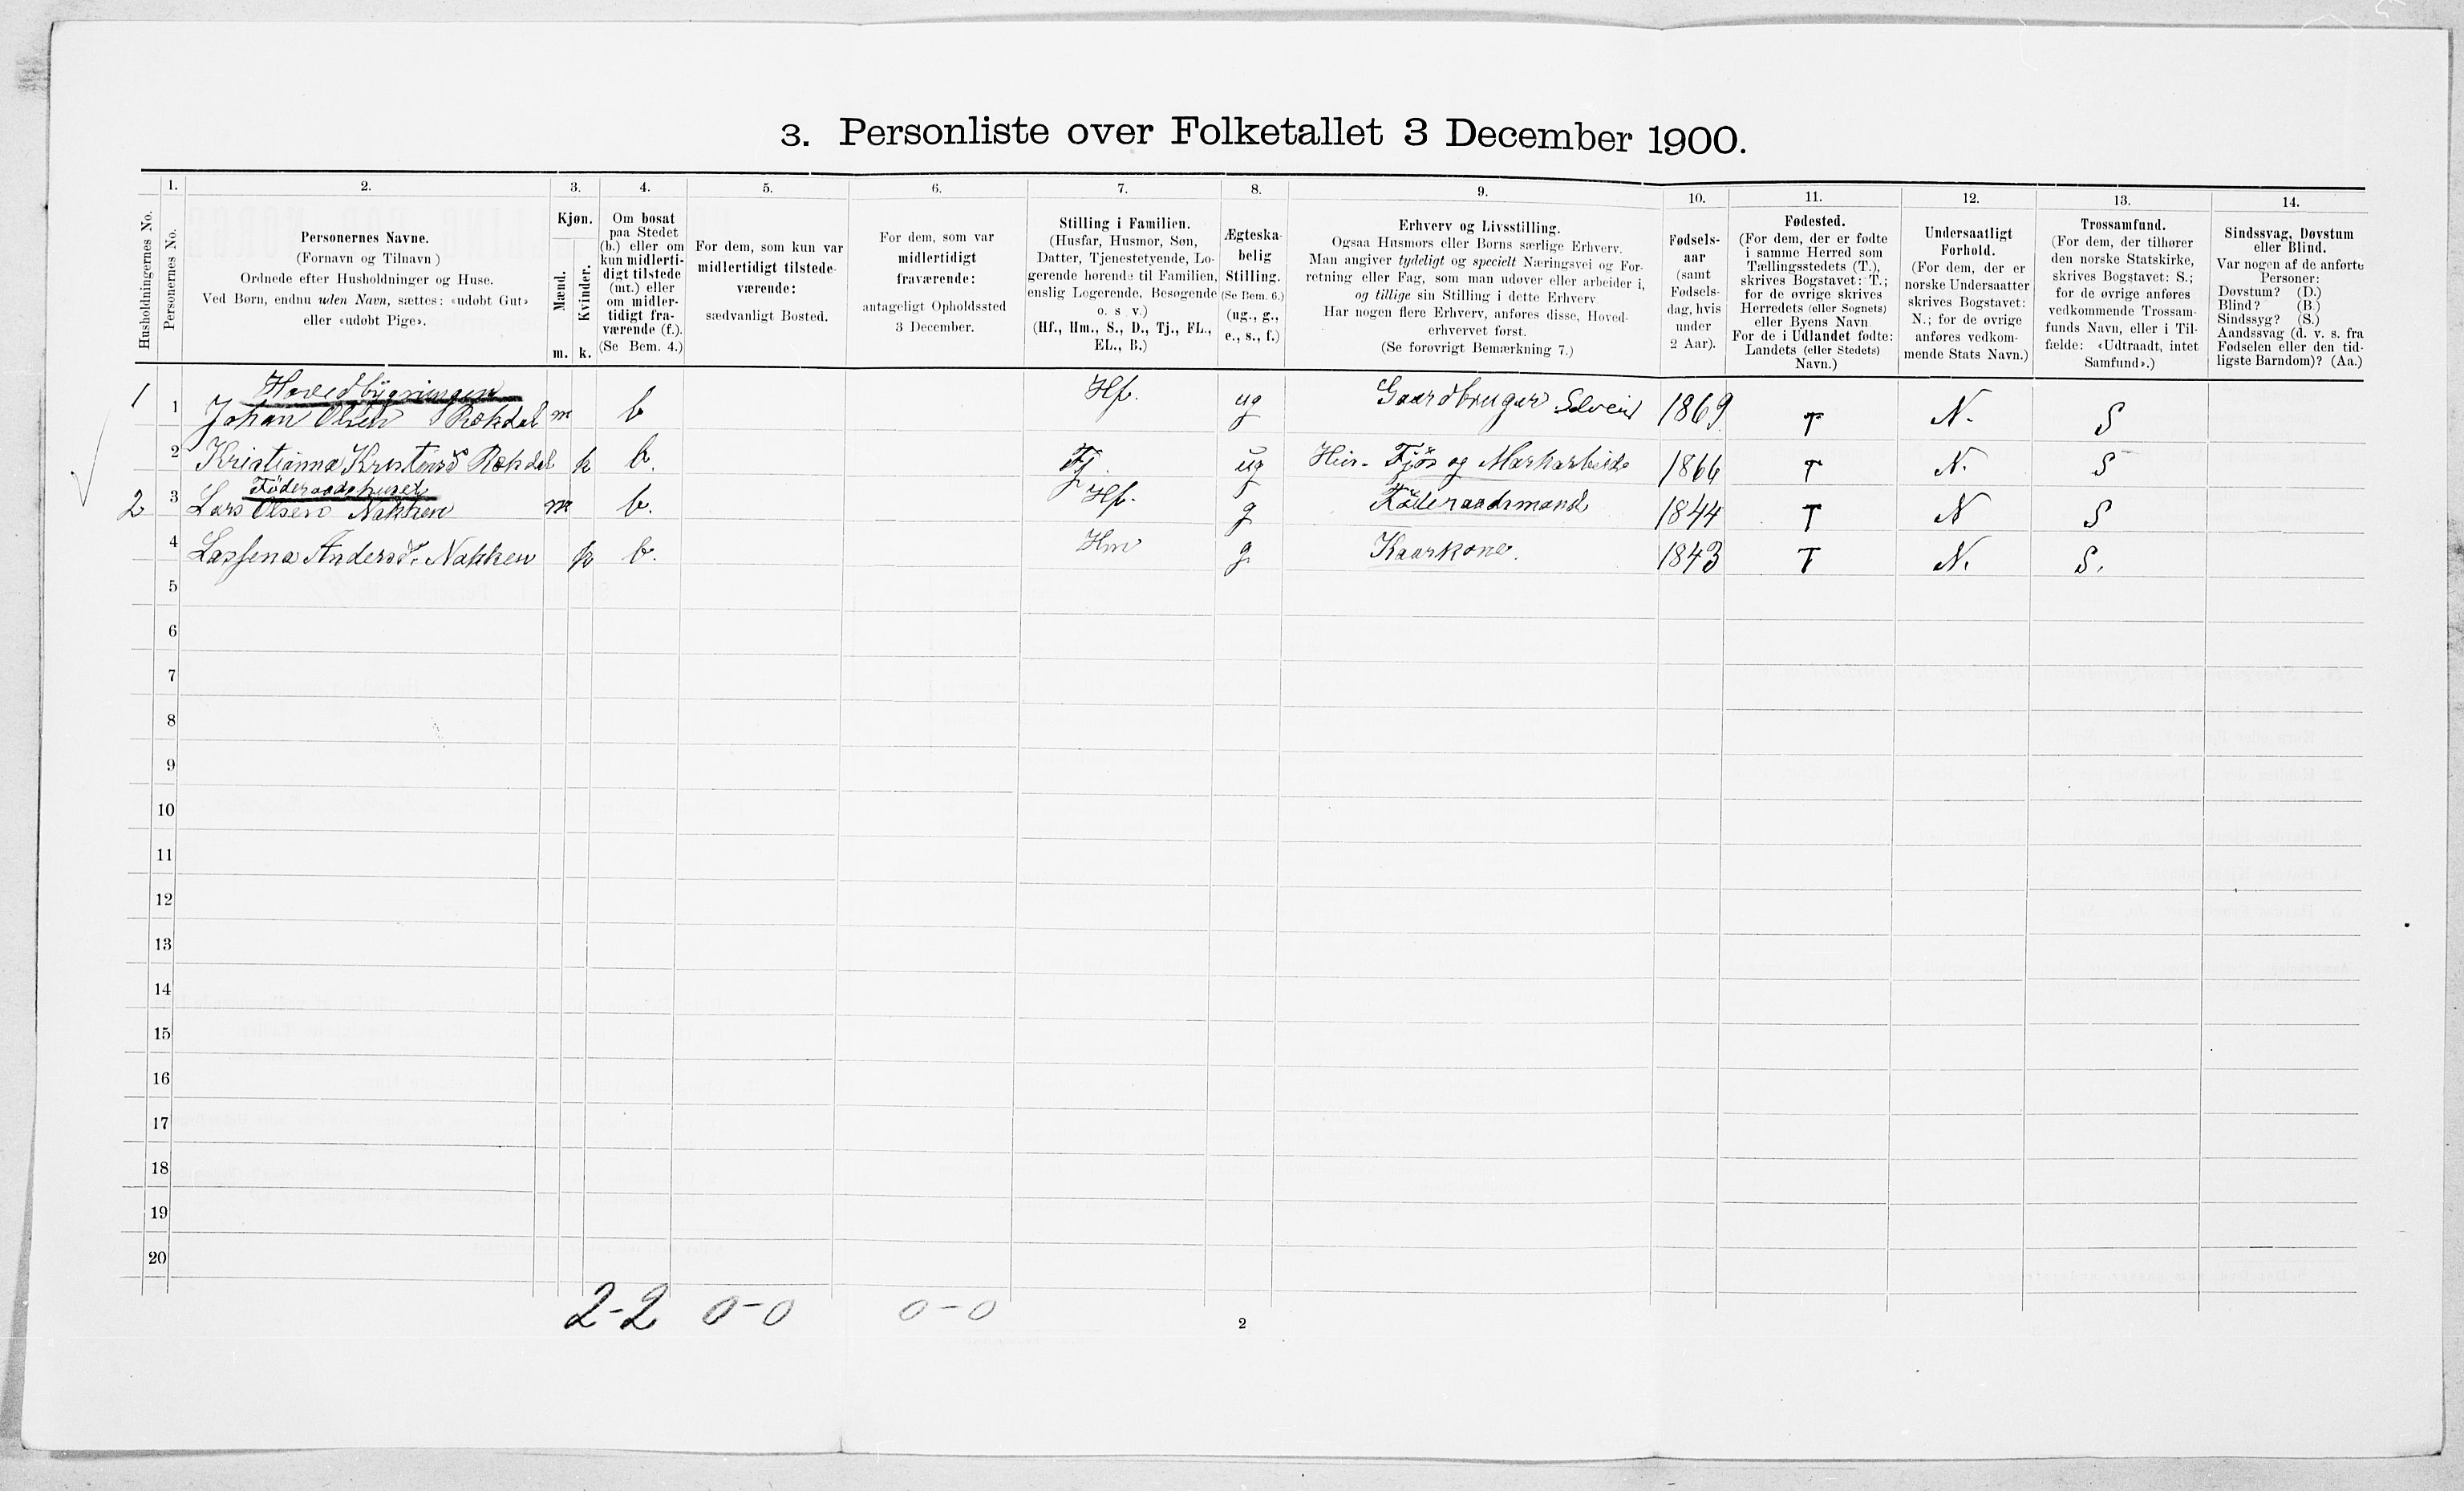 3. Personliste over Folketallet 3 December 1900.
1. 2. 3. 4. 5. 6. 7. 8. 9. 10. 11. 12. 13. 14.
Husholdningernes No.
Personernes No.
Personernes Navne.
(Fornavn og Tilnavn)
Ordnede efter Husholdninger og Huse.
Ved Børn, endnu uden Navn, sættes: «udøbt Gut»
eller «udøbt Pige».
Kjøn.
Mænd.
Kvinder.
m. k.
Om bosat
paa Stedet
(b.) eller om
kun midlerti-
digt tilstede
(mt.) eller
om midler-
tidigt fra-
værende (f.).
(Se Bem. 4.)
For dem, som kun var
midlertidigt tilstede-
værende:
sædvanligt Bosted.
For dem, som var
midlertidigt
fraværende:
antageligt Opholdssted
3 December.
Stilling i Familien.
(Husfar, Husmor, Søn,
Datter, Tjenestetyende, Lo-
gerende hørende til Familien,
enslig Logerende, Besøgende
o. s. v.)
(Hf., Hm., S., D., Tj., FL.,
EL., B.)
Ægteska-
belig
Stilling.
(Se Bem. 6.)
(ug., g.,
e., s., f.)
Erhverv og Livsstilling.
Ogsaa Husmors eller Børns særlige Erhverv.
Man angiver tydeligt og specielt Næringsvei og For-
retning eller Fag, som man udøver eller arbeider i,
og tillige sin Stilling i dette Erhverv.
Har nogen flere Erhverv, anføres disse, Hoved-
erhvervet først.
(Se forøvrigt Bemærkning 7.)
Fødsels-
aar
(samt
Fødsels-
dag, hvis
under
2 Aar).
Fødested.
(For dem, der er fødte
i samme Herred som
Tællingsstedets (T.),
skrives Bogstavet: T.;
for de øvrige skrives
Herredets (eller Sognets)
eller Byens Navn.
For de i Udlandet fødte:
Landets (eller Stedets)
Navn.)
Undersaatligt
Forhold.
(For dem, der er
norske Undersaatter
skrives Bogstavet:
N.; for de øvrige
anføres vedkom-
mende Stats Navn.)
Trossamfund.
(For dem, der tilhører
den norske Statskirke,
skrives Bogstavet: S.;
for de øvrige anføres
vedkommende Trossam-
funds Navn, eller i Til-
fælde: «Udtraadt, intet
Samfund».)
Sindssvag, Døvstum
eller Blind.
Var nogen af de anførte
Personer:
Døvstum? (D.)
Blind? (B.)
Sindssyg? (S.)
Aandssvag (d. v. s. fra
Fødselen eller den tid-
ligste Barndom)? (Aa.)
Hovedbygningen
1 1 Johan Olsen m b Hf. ug Gaardbruger Selveier 1869 T N. S
2 k b. Tj. ug Fjös og Markarbeide 1866 T N. S
Föderaadshuset
2 3 Lars Olsen Nakken m b. Hf. g Föderaadsmand 1844 T N S
4 Nakken k b. Hm g Kaarkone. 1843 T N. S.
5
6
7
8
9
10
11
12
13
14
15
16
17
18
19
20
2-2 0-0 0-0
2